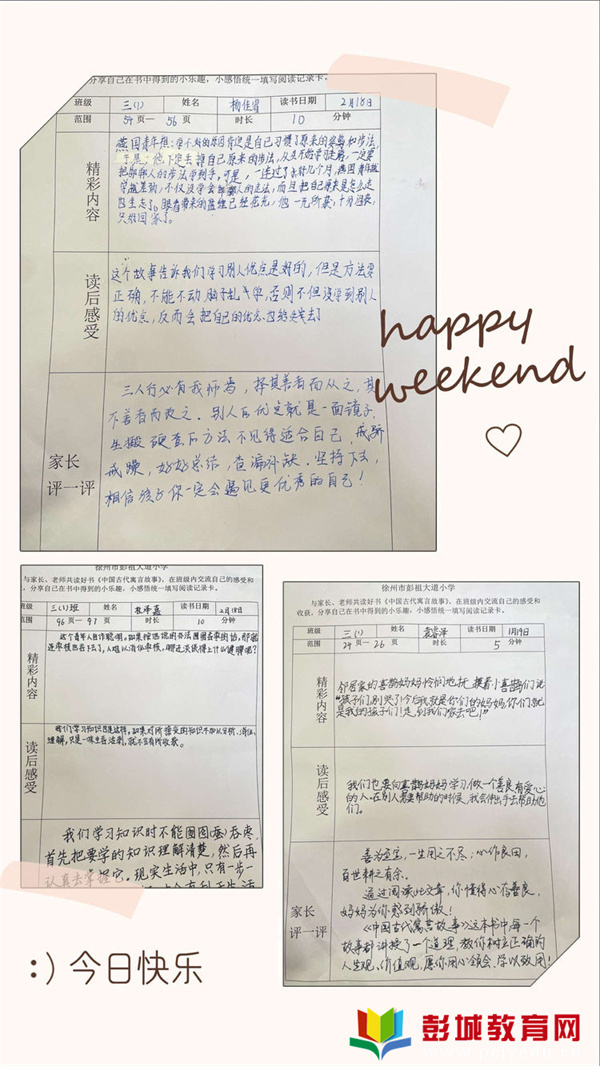 分享自己在书中得到的小乐趣，小感悟统一填写阅读记录卡。
班级 三(1) 姓名 杨佳冒 读书日期 2月18日
范围 54页— 56页 时长 10 分钟
精彩内容
燕国青年想：学不好的原因肯定是自己习惯了原来的姿势和步法，
于是，他下定决心丢掉自己原来的步法，从头开始学习走路，一定要
把邯郸人的步法学到手。可是，一连过了好几个月，燕国青年越
学越差劲，不仅没学会邯郸人的走法，而且把自己原来是怎么走
也全忘了。眼看带来的盘缠已经花光，他一无所获，十分沮丧，
只好回家了。
读后感受
这个故事告诉我们学习别人优点是好的，但是方法要
正确，不能不动脑子乱学，否则不但没学到别人
的优点，反而会把自己的优点也给丢去了
家长
评一评
三人行必有我师焉，择其善者而从之，其
不善者而改之。别人的优点就是一面镜子，
生搬硬套的方法不见得适合自己，戒骄
戒躁，好好总结，查漏补缺。坚持下去，
相信孩子你一定会遇见更优秀的自己！
happy
weekend
徐州市彭祖大道小学
与家长、老师共读好书《中国古代寓言故事》，在班级内交流自己的感受和
收获，分享自己在书中得到的小乐趣，小感悟统一填写阅读记录卡。
班级 三(1)班 姓名 杜泽嘉 读书日期 2月18日
范围 96页— 97页 时长 10 分钟
精彩内容
这个青年人自作聪明，如果按他说的办法囫囵吞枣的话，那就
连枣核也吞下去了，人难以消化枣核，哪还谈得上什么健脾呢？
读后感受
我们学习知识也是这样，如果对所接受的知识不加以分析、消化、
理解，只是一味生吞活剥，就不会有所收获。
我们学习知识时不能囫囵(卷)吞枣
首先把要学的知识理解清楚，然后再
认真去掌握它。现实生活中，只有一步一
徐州市彭祖大道小学
与家长、老师共读好书《中国古代寓言故事》，在班级内交流自己的感受和
收获，分享自己在书中得到的小乐趣，小感悟统一填写阅读记录卡。
班级 三(1) 姓名 读书日期 1月19日
范围 24页— 26页 时长 5 分钟
精彩内容
邻居家的喜鹊妈妈怜悯地抚摸着小喜鹊们说
“孩子们，别哭了！今后我就是你们的妈妈，你们就
是我的孩子们！走，到我们家去吧！”
读后感受
我们也要向喜鹊妈妈学习，做一个善良有爱心
的人。在别人需要帮助的时候，我会伸出手去帮助他
们。
家长
评一评
善为至宝，一生用之不尽；心作良田，
百世耕之有余。
通过阅读此文章，你懂得心存善良，
妈妈为你感到骄傲！
《中国古代寓言故事》这本书中每一个
故事都讲授了一个道理，教你树立正确的
人生观、价值观，愿你用心领会，学以致用！
:) 今日快乐
彭城教育网